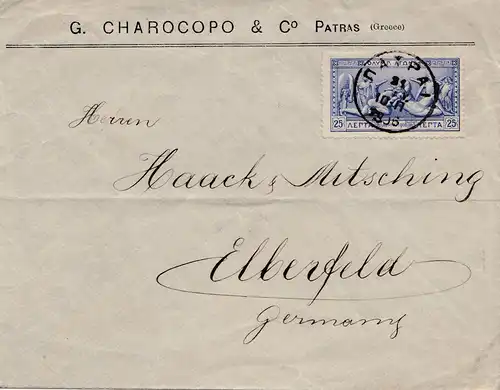 G. CHAROCOPO & Co PATRAS (Greece)
25 ΛΕΠΤΑ ΛΕΠΤΑ 25
ΠΑΤΡΑΙ
Herren
Haack & Mitsching
Elberfeld
Germany